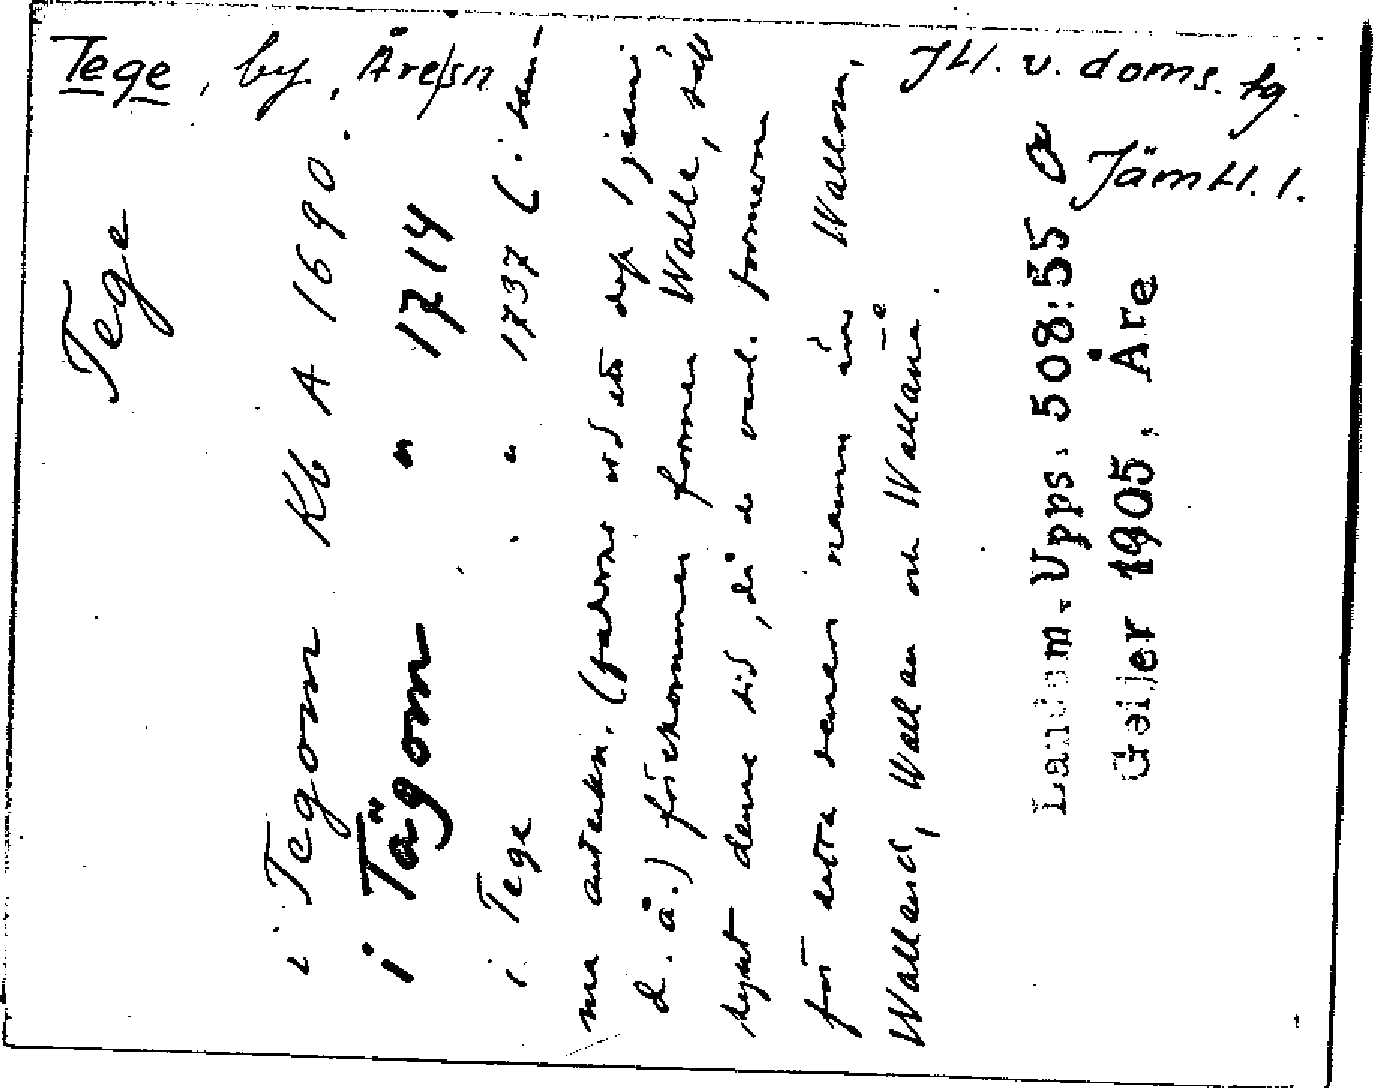 Tege, by, Åre sn
Jtl. v. doms. tg
Jämtl. l.
Tege
i Tegom Kb A 1690.
i Tägom " 1714
i Tege " 1737 (.
ma anteckn. (
d. å.) förekommer formen Walle,
denna tid, då de vanl. formerna
för detta senare namn äro Wallom,
Walland, Wallan och Wallane
Landsm. Upps. 508:55
Geijer 1905, Åre